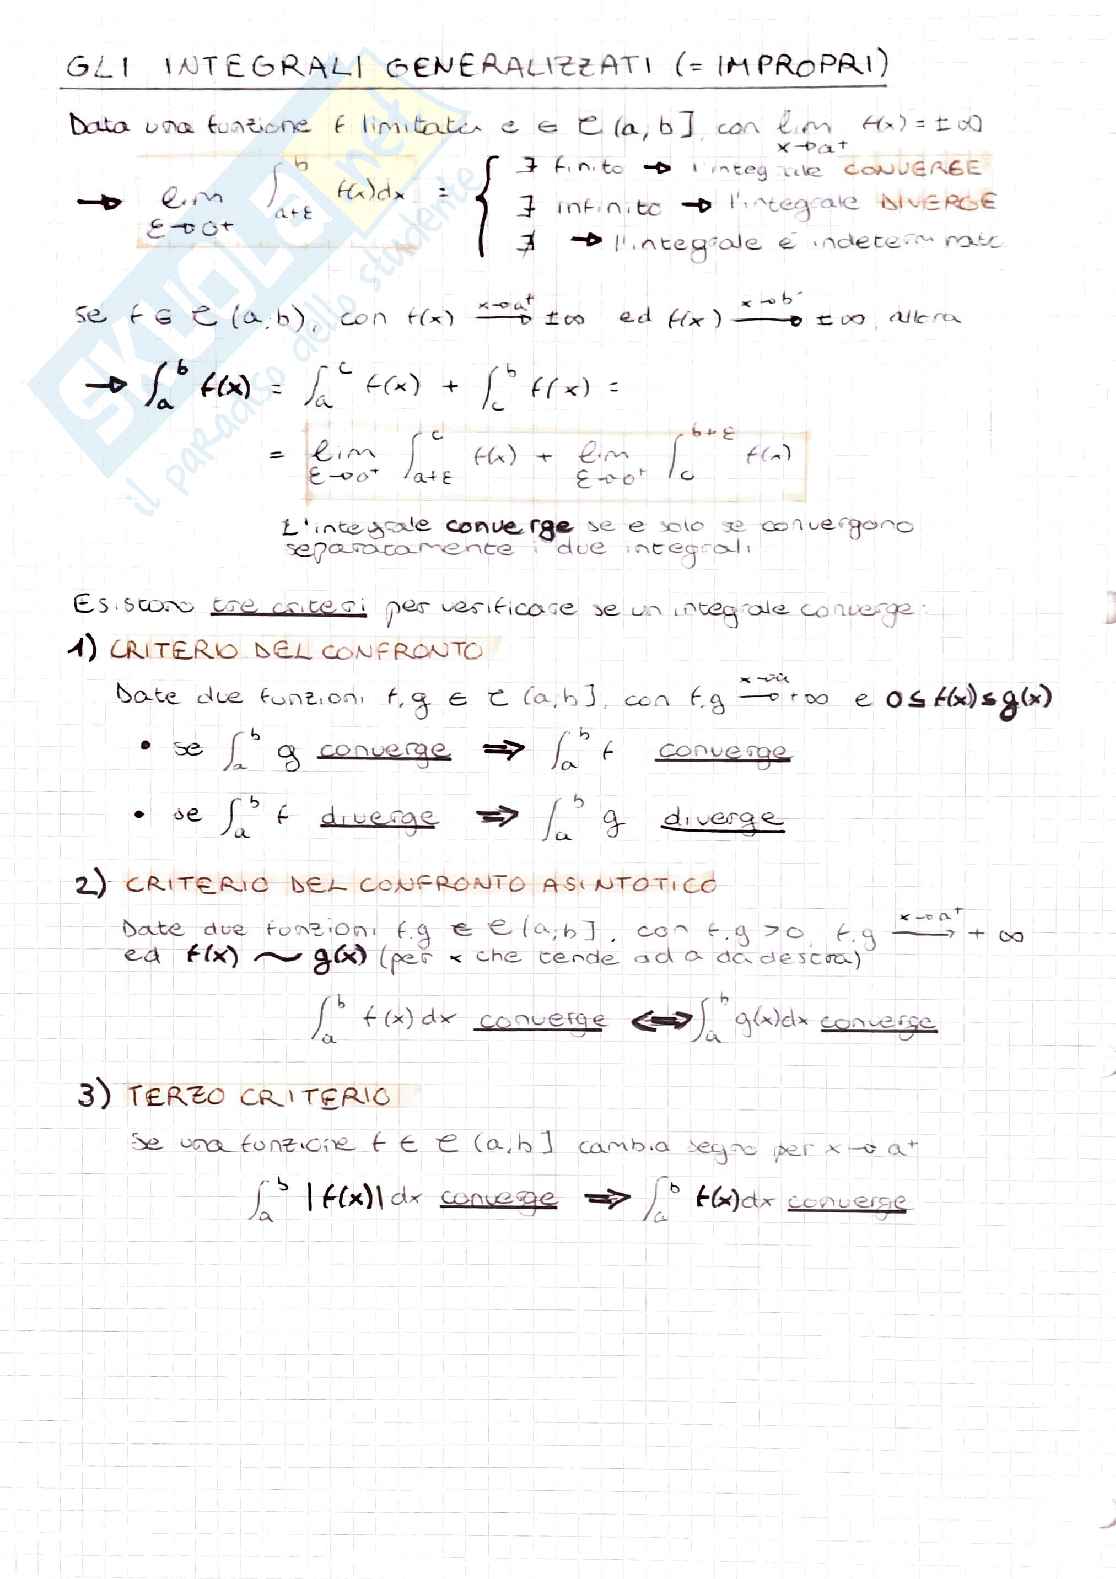 GLI INTEGRALI GENERALIZZATI (= IMPROPRI)
Data una funzione f limitata e ∈ C(a,b], con lim x→a⁺ f(x) = ±∞
→ lim ε→0⁺ ∫_{a+ε}^{b} f(x)dx = { ∃ finito → l'integrale CONVERGE
∃ infinito → l'integrale DIVERGE
∄ → l'integrale è indeterminato
Se f ∈ C(a,b), con f(x) →(x→a⁺) ±∞ ed f(x) →(x→b⁻) ±∞, allora
→ ∫_a^b f(x) = ∫_a^c f(x) + ∫_c^b f(x) =
= lim ε→0⁺ ∫_{a+ε}^{c} f(x) + lim ε→0⁺ ∫_c^{b+ε} f(x)
L'integrale converge se e solo se convergono
separatamente i due integrali
Esistono tre criteri per verificare se un integrale converge:
1) CRITERIO DEL CONFRONTO
Date due funzioni f,g ∈ C(a,b], con f,g →(x→a) +∞ e 0≤f(x)≤g(x)
• se ∫_a^b g converge ⇒ ∫_a^b f converge
• se ∫_a^b f diverge ⇒ ∫_a^b g diverge
2) CRITERIO DEL CONFRONTO ASINTOTICO
Date due funzioni f,g ∈ C(a,b], con f,g >0, f,g →(x→a⁺) +∞
ed f(x) ~ g(x) (per x che tende ad a da destra)
∫_a^b f(x)dx converge ⟺ ∫_a^b g(x)dx converge
3) TERZO CRITERIO
Se una funzione f ∈ C(a,b] cambia segno per x→a⁺
∫_a^b |f(x)|dx converge ⇒ ∫_a^b f(x)dx converge
SKUOLA.net
il paradiso dello studente